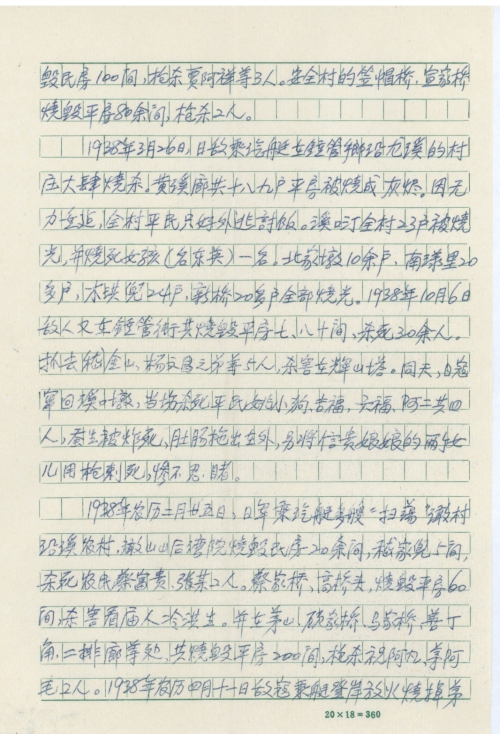 毁民房100间,枪杀贾阿祥等3人。安全村的笠帽桥,宣家桥
烧毁平房80余间,枪杀2人。
1938年3月26日,日敌乘汽艇在钟管乡沿龙溪的村
庄大肆烧杀。黄溪廊共十八九户平房被烧成灰烬。因无
力重建,全村平民只好外逃讨饭。溪口汀全村23户被烧
光,并烧死女孩(名东英)一名。北家墩10余户、南漾里20
多户,木排兜24户,新桥20多户全部烧光。1938年10月6日
敌人又在钟管街共烧毁平房七、八十间,杀死30余人。
抓去金山,杨文昌之弟等5人,杀害在辉山塔。同天,日寇
军回埭叶墩,当场杀死平民好的狗、杏福、天福、阿二共四
人,被炸死,肚肠拖出在外,另将信贵娘娘的两女
儿用枪刺死,惨不忍睹。
1938年农历二月廿五日,日军乘汽艇多艘“扫荡”墩村
沿溪农村,山后禧院烧毁民房20余间,嵇家兜5间,
杀死农民蔡富贵,张某2人。蔡家桥、高桥头,烧毁平房60
间,杀害看届人冷洪生。并在茅山、硕家桥、马家桥、善丁
角、二排廊等处,共烧毁平房200间,枪杀祝阿九,掌阿
毛2人。1938年农历四月十一日敌寇乘艇登岸放火烧掉茅
20×18=360